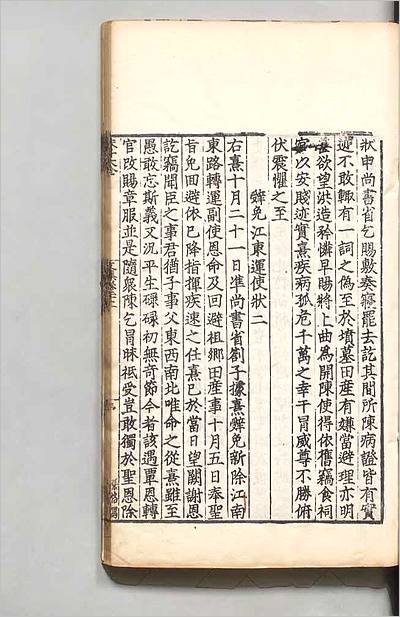 狀申尚書省乞賜敷奏寢罷去訖其間所陳病證皆有實
迹不敢輙有一詞之偽至於墳墓田産有嫌當避理亦明
甚欲望洪造矜憐早賜將上曲為開陳使得依舊竊食祠
官以安賤迹實熹疾病孤危千萬之幸干冒威尊不勝俯
伏震懼之至
辤免江東運使狀二
右熹十月二十一日準尚書省劄子據熹辤免新除江南
東路轉運副使恩命及回避祖鄉田産事十月五日奉聖
旨免回避依已降指揮疾速之任熹已於當日望闕謝恩
訖竊聞臣之事君猶子事父東西南北唯命之從熹雖至
愚敢忘斯義又况平生碌碌初無竒節今者該遇覃恩轉
官改賜章服並是隨衆陳乞冒昧祗受豈敢獨於聖恩除